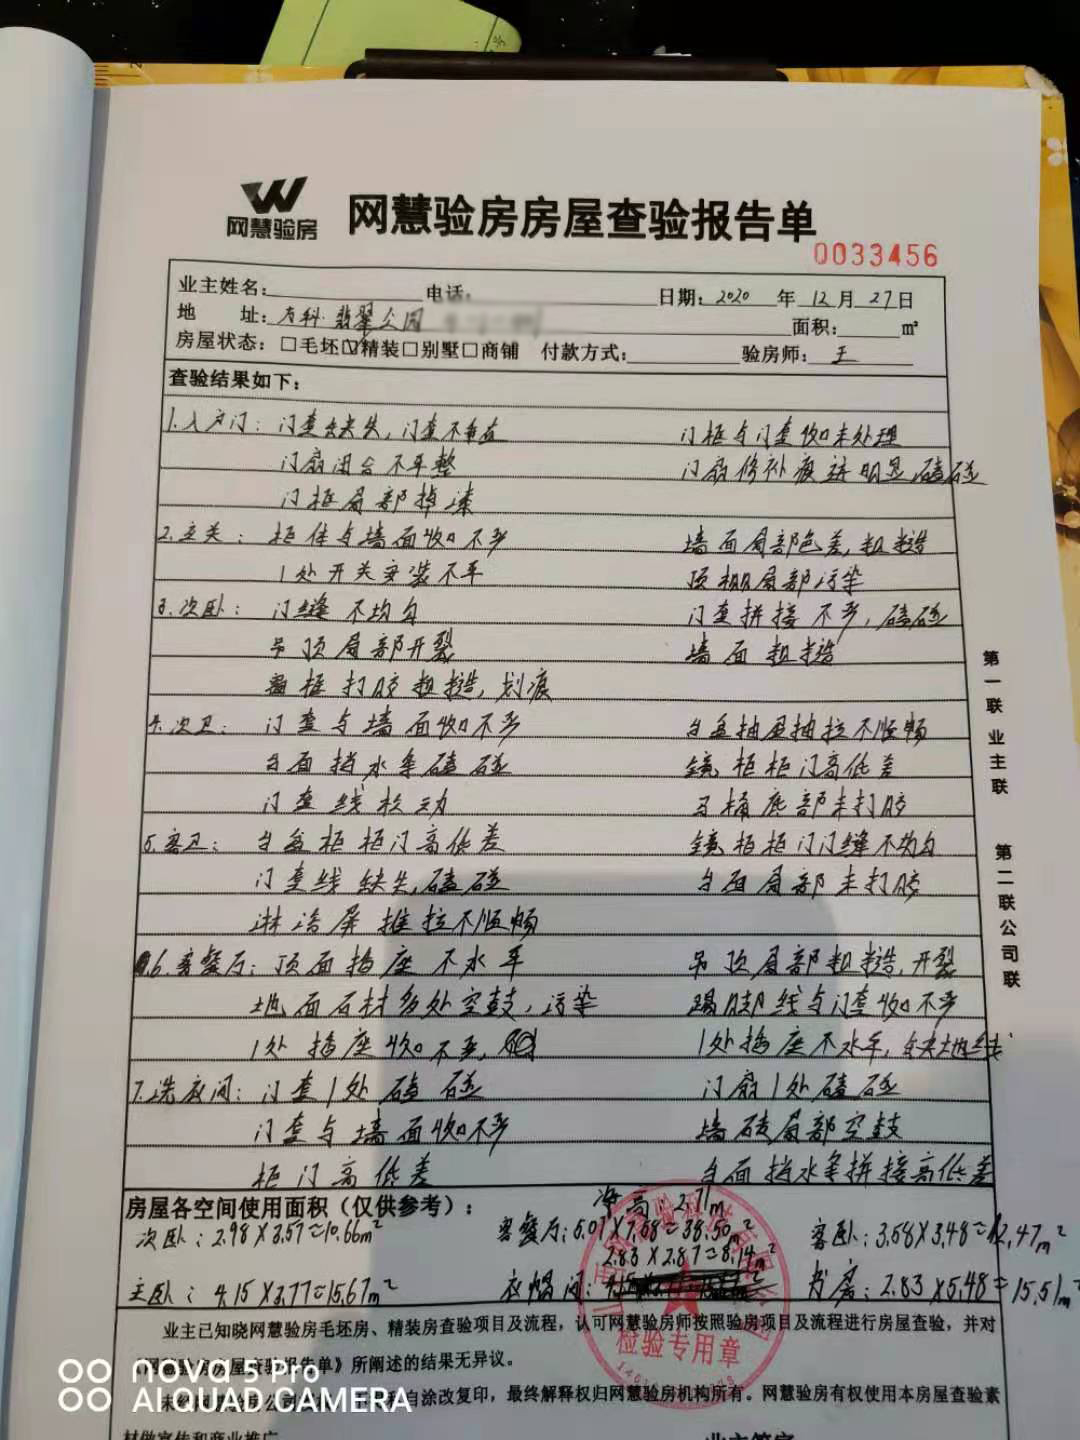 网慧验房
网慧验房房屋查验报告单
0033456
业主姓名: 电话: 日期: 2020 年 12 月 27 日
地 址: 万科·翡翠公园 面积: m²
房屋状态: □毛坯☑精装□别墅□商铺 付款方式: 验房师: 王
查验结果如下:
1.入户门: 门套缺失,门套不垂直 门框与门套收口未处理
门扇闭合不平整 门扇修补痕迹明显磕碰
门框局部掉漆
2.玄关: 柜体与墙面收口不严 墙面局部色差,粗糙
1处开关安装不平 顶棚局部污染
3.次卧: 门缝不均匀 门套拼接不严,磕碰
吊顶局部开裂 墙面粗糙
窗框打胶粗糙,划痕
4.次卫: 门套与墙面收口不严 台盆抽屉抽拉不顺畅
台面挡水条磕碰 镜柜柜门高低差
门套线松动 马桶底部未打胶
5.客卫: 台盆柜柜门高低差 镜柜柜门门缝不均匀
门套线缺失,磕碰 台面局部未打胶
淋浴屏推拉不顺畅
6.客餐厅: 顶面插座不水平 吊顶局部粗糙,开裂
地面石材多处空鼓,污染 踢脚线与门套收口不严
1处插座收口不严, 1处插座不水平,
7.洗衣间: 门套1处磕碰 门扇1处磕碰
门套与墙面收口不严 墙砖局部空鼓
柜门高低差 台面挡水条拼接高低差
房屋各空间使用面积(仅供参考): 净高: 2.71m
次卧: 2.98×3.57≈10.66m² 客餐厅: 5.01×7.68≈38.50m² 客卧: 3.58×3.48≈12.47m²
2.83×2.87≈8.14m²
主卧: 4.15×3.77≈15.67m² 衣帽间: 书房: 2.83×5.48≈15.51m²
业主已知晓网慧验房毛坯房、精装房查验项目及流程,认可网慧验房师按照验房项目及流程进行房屋查验,并对
《网慧验房房屋查验报告单》所阐述的结果无异议。
自涂改复印,最终解释权归网慧验房机构所有。网慧验房有权使用本房屋查验素
材做宣传和商业推广
业主签字
第一联 业主联
第二联 公司联
检验专用章
nova 5 Pro
AI QUAD CAMERA